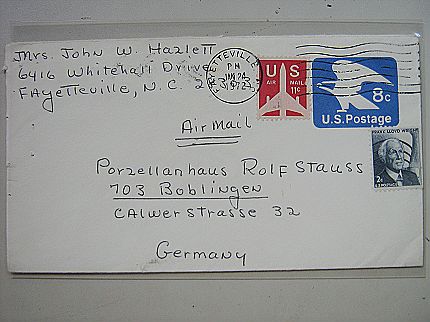 Mrs. John W. Hazlett
6416 Whitehall Drive
Fayetteville, N.C.
FAYETTEVILLE
PM
1972
US
AIR MAIL
11c
8c
U.S. Postage
Air Mail
FRANK LLOYD WRIGHT
2¢
U.S. POSTAGE
Porzellanhaus Rolf Stauss
703 Boblingen
Calwerstrasse 32
Germany